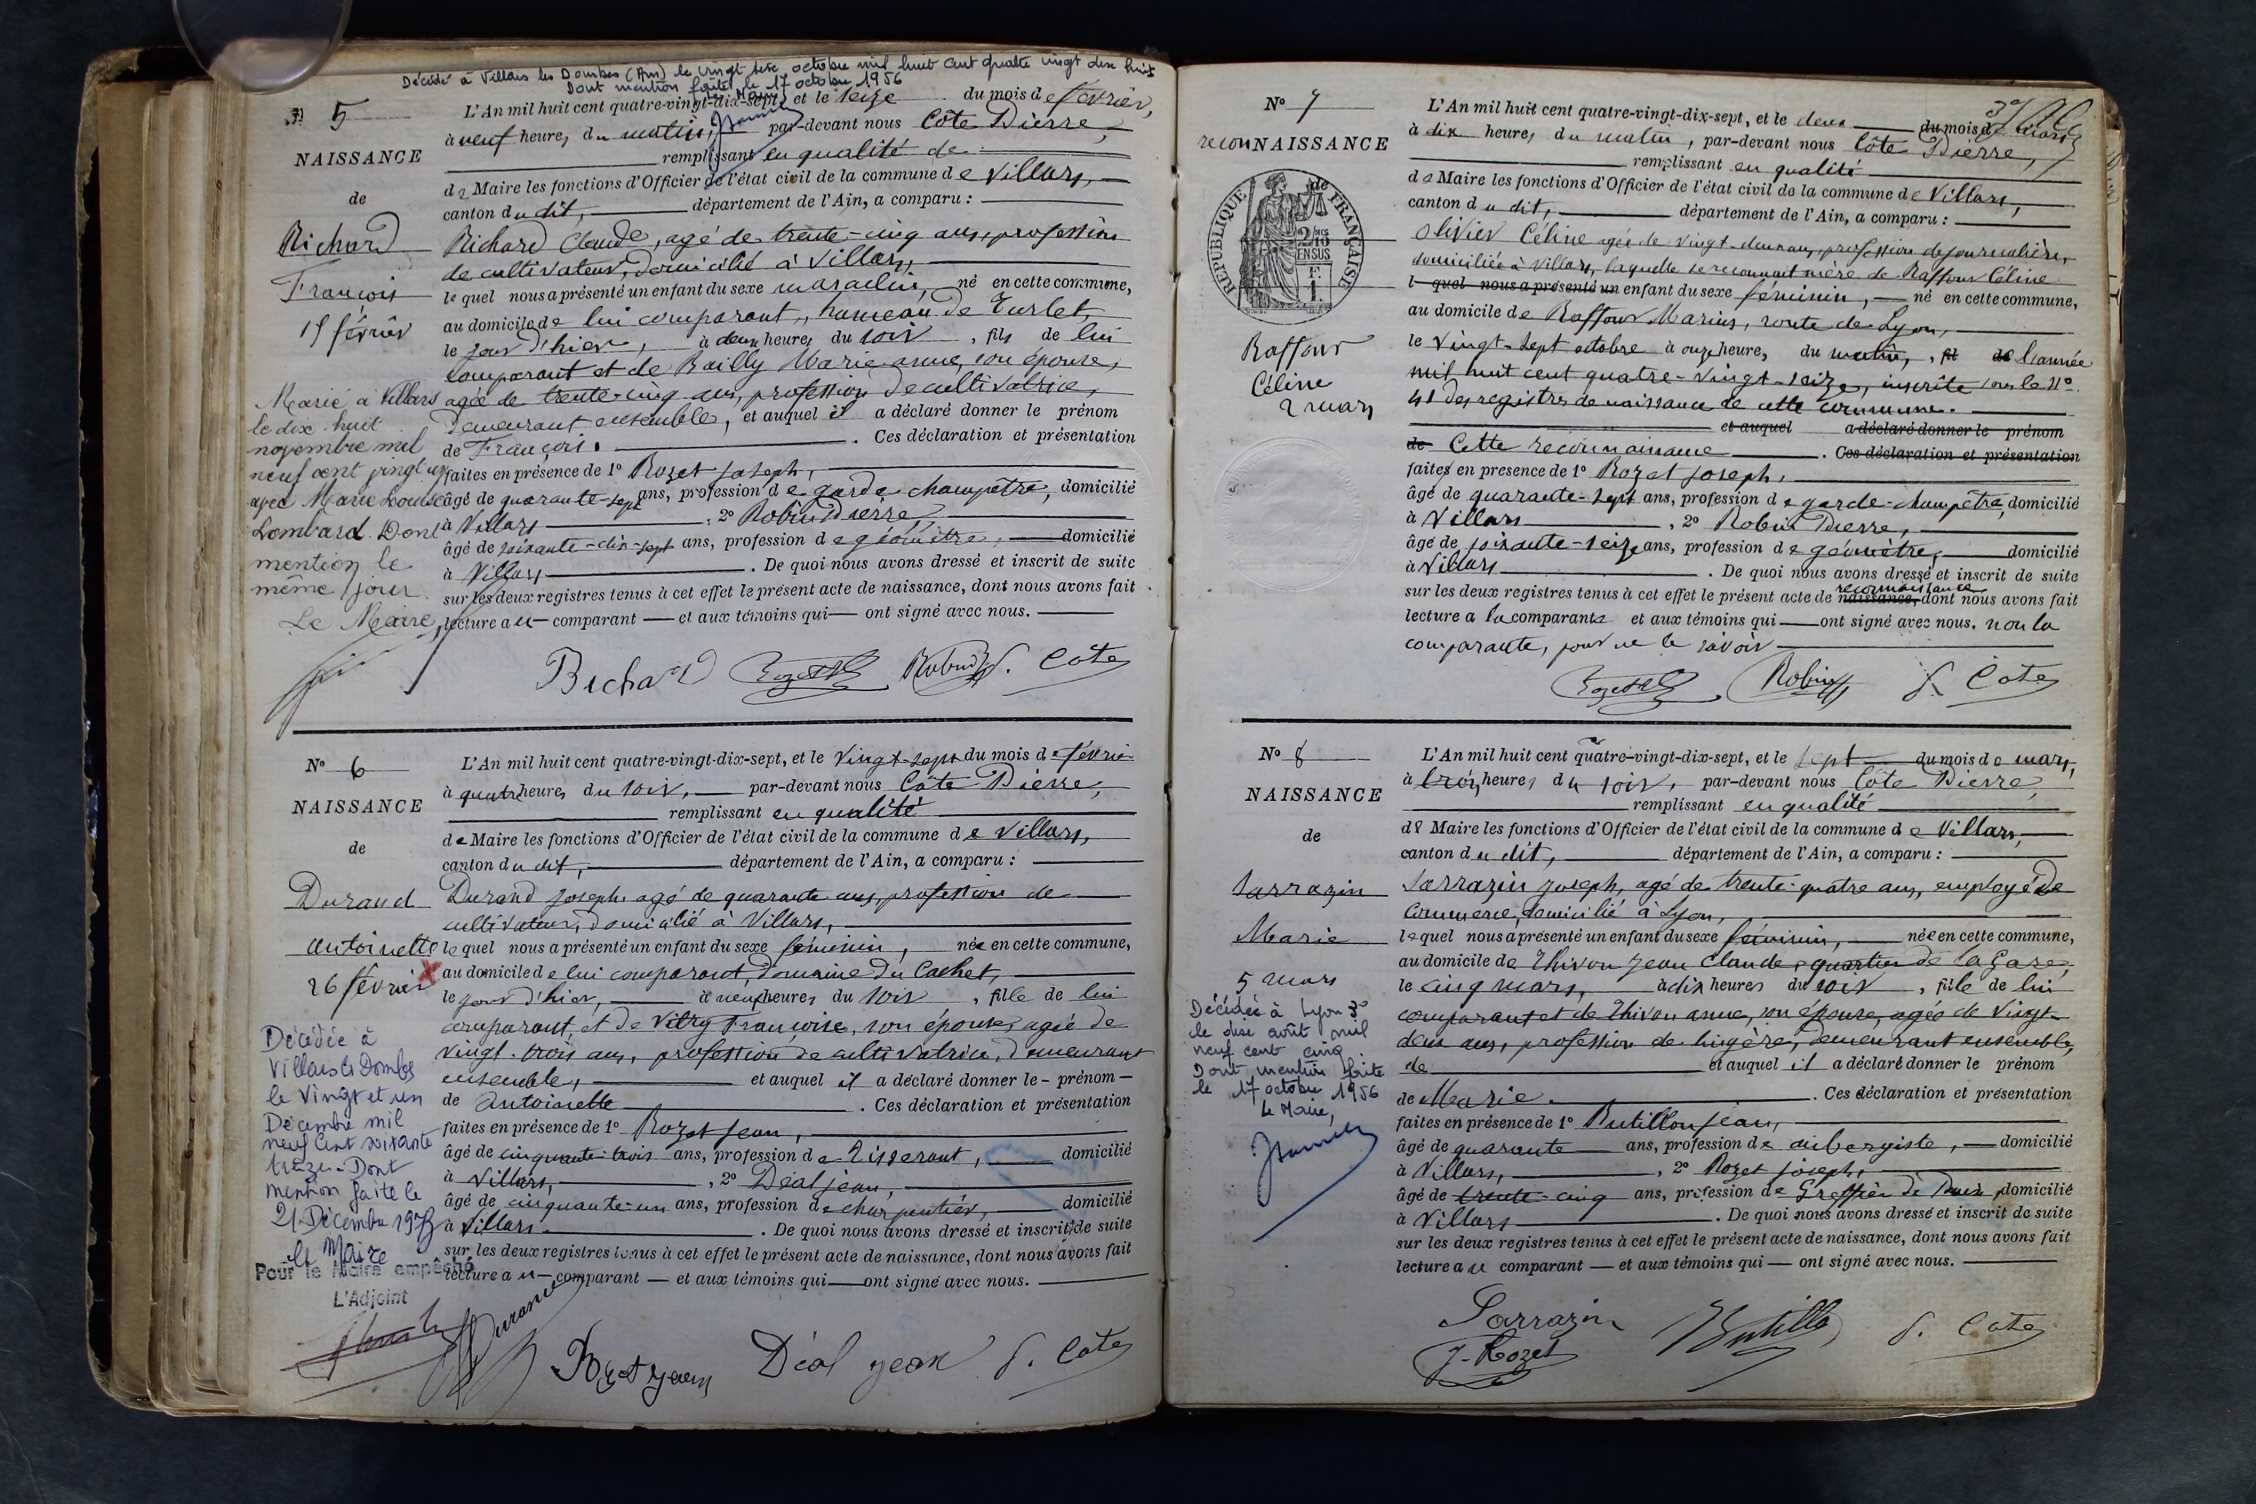 Décédé à Villars les Dombes (Ain) le vingt seize octobre mil huit cent quatre vingt dix huit
Dont mention faite le 17 octobre 1956
Le Maire
5
NAISSANCE
de
Richard
François
15 février
Marié à Villars
le dix-huit
novembre mil
neuf cent vingt un
avec Marie Louise
Lombard. Dont
mention le
même jour.
Le Maire,
L'An mil huit cent quatre-vingt-dix-sept, et le seize du mois de février,
à neuf heures du matin, par-devant nous Côte Pierre,
remplissant en qualité de
de Maire les fonctions d'Officier de l'état civil de la commune de Villars,
canton du dit, département de l'Ain, a comparu :
Richard Claude, agé de trente-cinq ans, profession
de cultivateur, domicilié à Villars,
lequel nous a présenté un enfant du sexe masculin, né en cette commune,
au domicile de lui comparant, hameau de Turlet,
le jour d'hier, à deux heures du soir, fils de lui
comparant et de Bailly Marie anne, son épouse,
agée de trente-cinq ans, profession de cultivatrice,
demeurant ensemble, et auquel il a déclaré donner le prénom
de François. Ces déclaration et présentation
faites en présence de 1º Rozet Joseph,
âgé de quarante-sept ans, profession de garde champêtre, domicilié
à Villars, 2º Robin Pierre
âgé de soixante-dix-sept ans, profession de géomètre, domicilié
à Villars. De quoi nous avons dressé et inscrit de suite
sur les deux registres tenus à cet effet le présent acte de naissance, dont nous avons fait
lecture au comparant et aux témoins qui ont signé avec nous.
Richard Rozet Robin P. Côte
Nº 6
NAISSANCE
de
Durand
Antoinette
26 février
Décédée à
Villars les Dombes
le Vingt et un
Décembre mil
neuf cent soixante
treize. Dont
mention faite le
21 Décembre 1973
Le Maire
Pour le Maire empêché
L'Adjoint
L'An mil huit cent quatre-vingt-dix-sept, et le vingt-sept du mois de février
à quatre heures du soir, par-devant nous Côte Pierre,
remplissant en qualité
de Maire les fonctions d'Officier de l'état civil de la commune de Villars,
canton du dit, département de l'Ain, a comparu :
Durand Joseph agé de quarante ans, profession de
cultivateur, domicilié à Villars,
lequel nous a présenté un enfant du sexe féminin, née en cette commune,
au domicile de lui comparant, domaine du Cachet,
le jour d'hier, à neuf heures du soir, fille de lui
comparant, et de Vitry Françoise, son épouse, agée de
vingt-trois ans, profession de cultivatrice, demeurant
ensemble, et auquel il a déclaré donner le prénom
de Antoinette. Ces déclaration et présentation
faites en présence de 1º Rozet Jean,
âgé de cinquante-trois ans, profession de Tisserant, domicilié
à Villars, 2º Déal jean,
âgé de cinquante-un ans, profession de charpentier, domicilié
à Villars. De quoi nous avons dressé et inscrit de suite
sur les deux registres tenus à cet effet le présent acte de naissance, dont nous avons fait
lecture au comparant et aux témoins qui ont signé avec nous.
Durand Rozet Jean Déal jean P. Côte
Nº 7
reconNAISSANCE
RÉPUBLIQUE FRANÇAISE
2/10 EN SUS
Raffour
Céline
2 mars
L'An mil huit cent quatre-vingt-dix-sept, et le deux du mois de mars
à dix heures du matin, par-devant nous Côte Pierre,
remplissant en qualité
de Maire les fonctions d'Officier de l'état civil de la commune de Villars,
canton du dit, département de l'Ain, a comparu :
Olivier Céline agée de vingt-deux ans, profession de journalière,
domiciliée à Villars, laquelle se reconnait mère de Raffour Céline
lequel nous a présenté un enfant du sexe féminin, né en cette commune,
au domicile de Raffour Marius, route de Lyon,
le vingt-sept octobre à onze heures, du matin, fil de l'année
mil huit cent quatre-vingt-seize, inscrite sous le nº
41 des registres de naissance de cette commune.
et auquel a déclaré donner le prénom
de Cette reconnaissance. Ces déclaration et présentation
faites en présence de 1º Rozet Joseph,
âgé de quarante-sept ans, profession de garde-champêtre, domicilié
à Villars, 2º Robin Pierre,
âgé de soixante-seize ans, profession de géomètre, domicilié
à Villars. De quoi nous avons dressé et inscrit de suite
sur les deux registres tenus à cet effet le présent acte de naissance, reconnaissance dont nous avons fait
lecture a la comparante et aux témoins qui ont signé avec nous, non la
comparante, pour ne le savoir
Rozet Robin P. Côte
Nº 8
NAISSANCE
de
Sarrazin
Marie
5 mars
Décédée à Lyon 3º
le dix août mil
neuf cent cinq
Dont mention faite
le 17 octobre 1956
Le Maire,
L'An mil huit cent quatre-vingt-dix-sept, et le sept du mois de mars,
à trois heures du soir, par-devant nous Côte Pierre,
remplissant en qualité
de Maire les fonctions d'Officier de l'état civil de la commune de Villars,
canton du dit, département de l'Ain, a comparu :
Sarrazin Joseph, agé de trente-quatre ans, employé de
commerce, domicilié à Lyon,
lequel nous a présenté un enfant du sexe féminin, née en cette commune,
au domicile de Thivon Jean Claude, quartier de la Gare,
le cinq mars, à dix heures du soir, fille de lui
comparant et de Thivon anne, son épouse, agée de vingt-
deux ans, profession de lingère, demeurant ensemble,
de et auquel il a déclaré donner le prénom
de Marie. Ces déclaration et présentation
faites en présence de 1º Butillon jean,
âgé de quarante ans, profession de aubergiste, domicilié
à Villars, 2º Rozet joseph,
âgé de trente-cinq ans, profession de Greffier de Paix, domicilié
à Villars. De quoi nous avons dressé et inscrit de suite
sur les deux registres tenus à cet effet le présent acte de naissance, dont nous avons fait
lecture au comparant et aux témoins qui ont signé avec nous.
Sarrazin Butillon P. Côte
J. Rozet